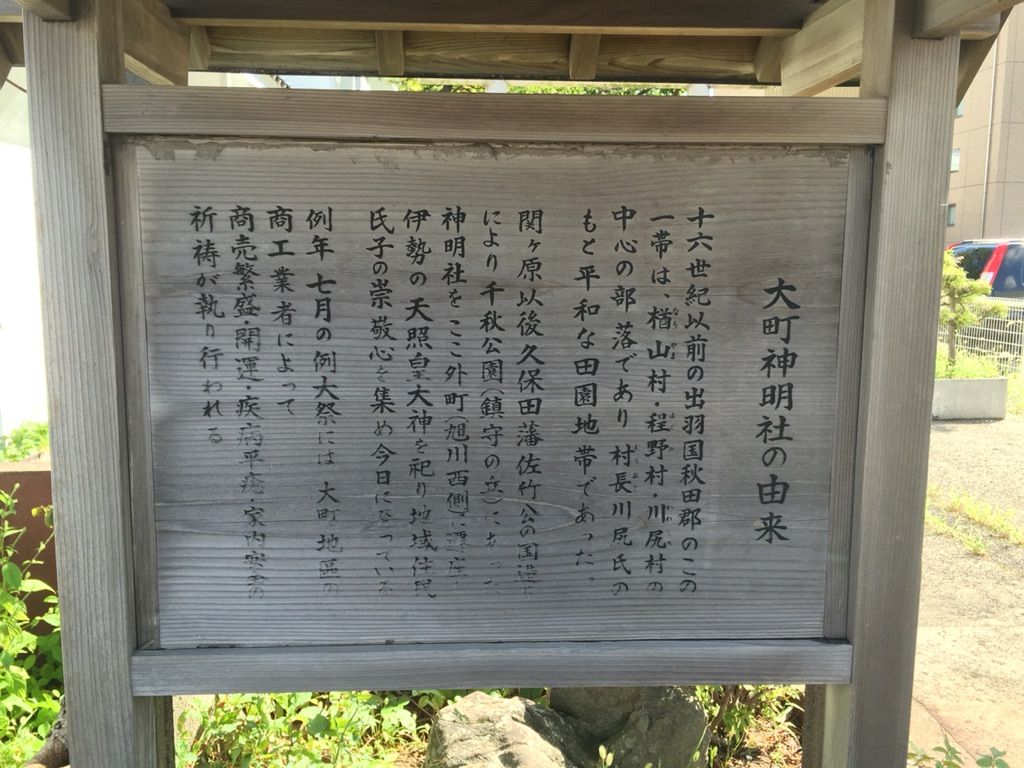 大町神明社の由来
十六世紀以前の出羽国秋田郡のこの
一帯は、楢山村・程野村・川尻村の
中心の部落であり 村長川尻氏の
もと平和な田園地帯であった。
関ヶ原以後久保田藩佐竹公の国造り
により千秋公園(鎮守の丘)にあった
神明社をここ外町(旭川西側)に遷座
伊勢の天照皇大神を祀り地域住民
氏子の崇敬心を集め今日に至っている
例年 七月の例大祭には 大町地區の
商工業者によって
商売繁盛・開運・疾病平癒・家内安全の
祈祷が執り行われる